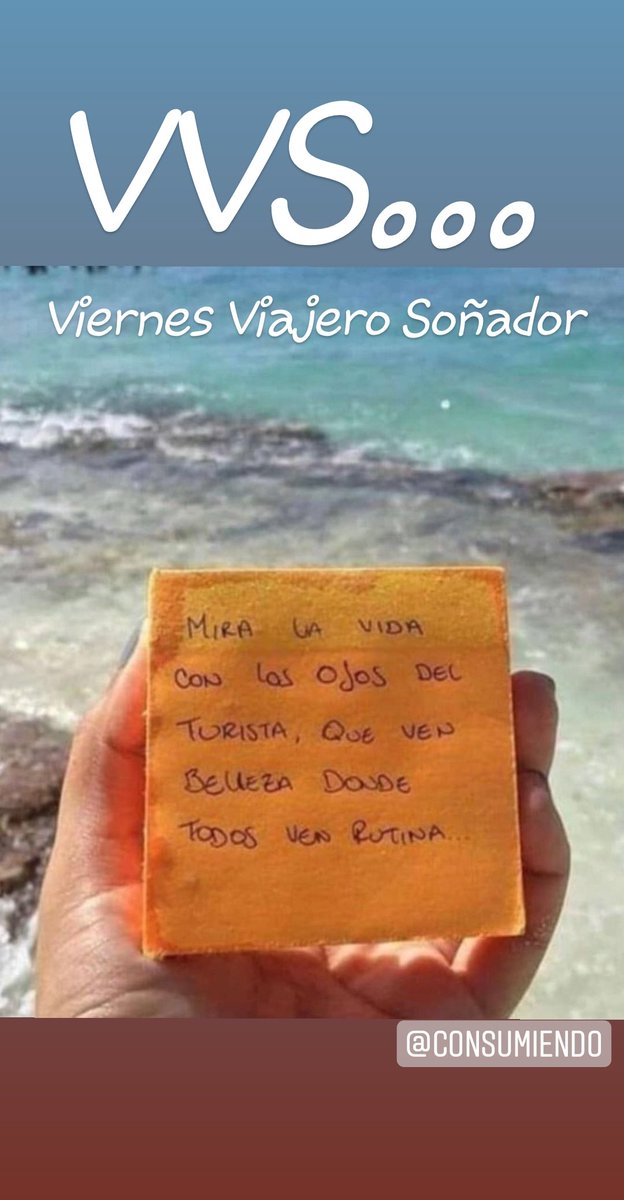 VVS...
Viernes Viajero Soñador
MIRA LA VIDA
CON LOS OJOS DEL
TURISTA, QUE VEN
BELLEZA DONDE
TODOS VEN RUTINA...
@CONSUMIENDO